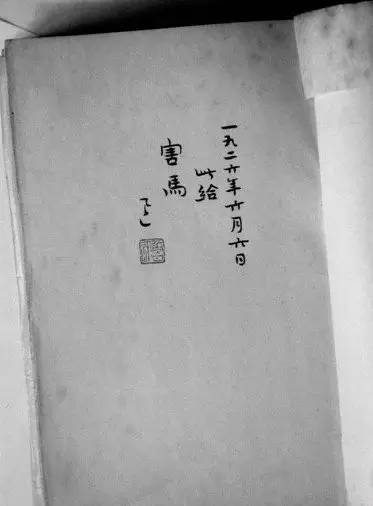 一九二六年六月六日
此給
害馬
迅